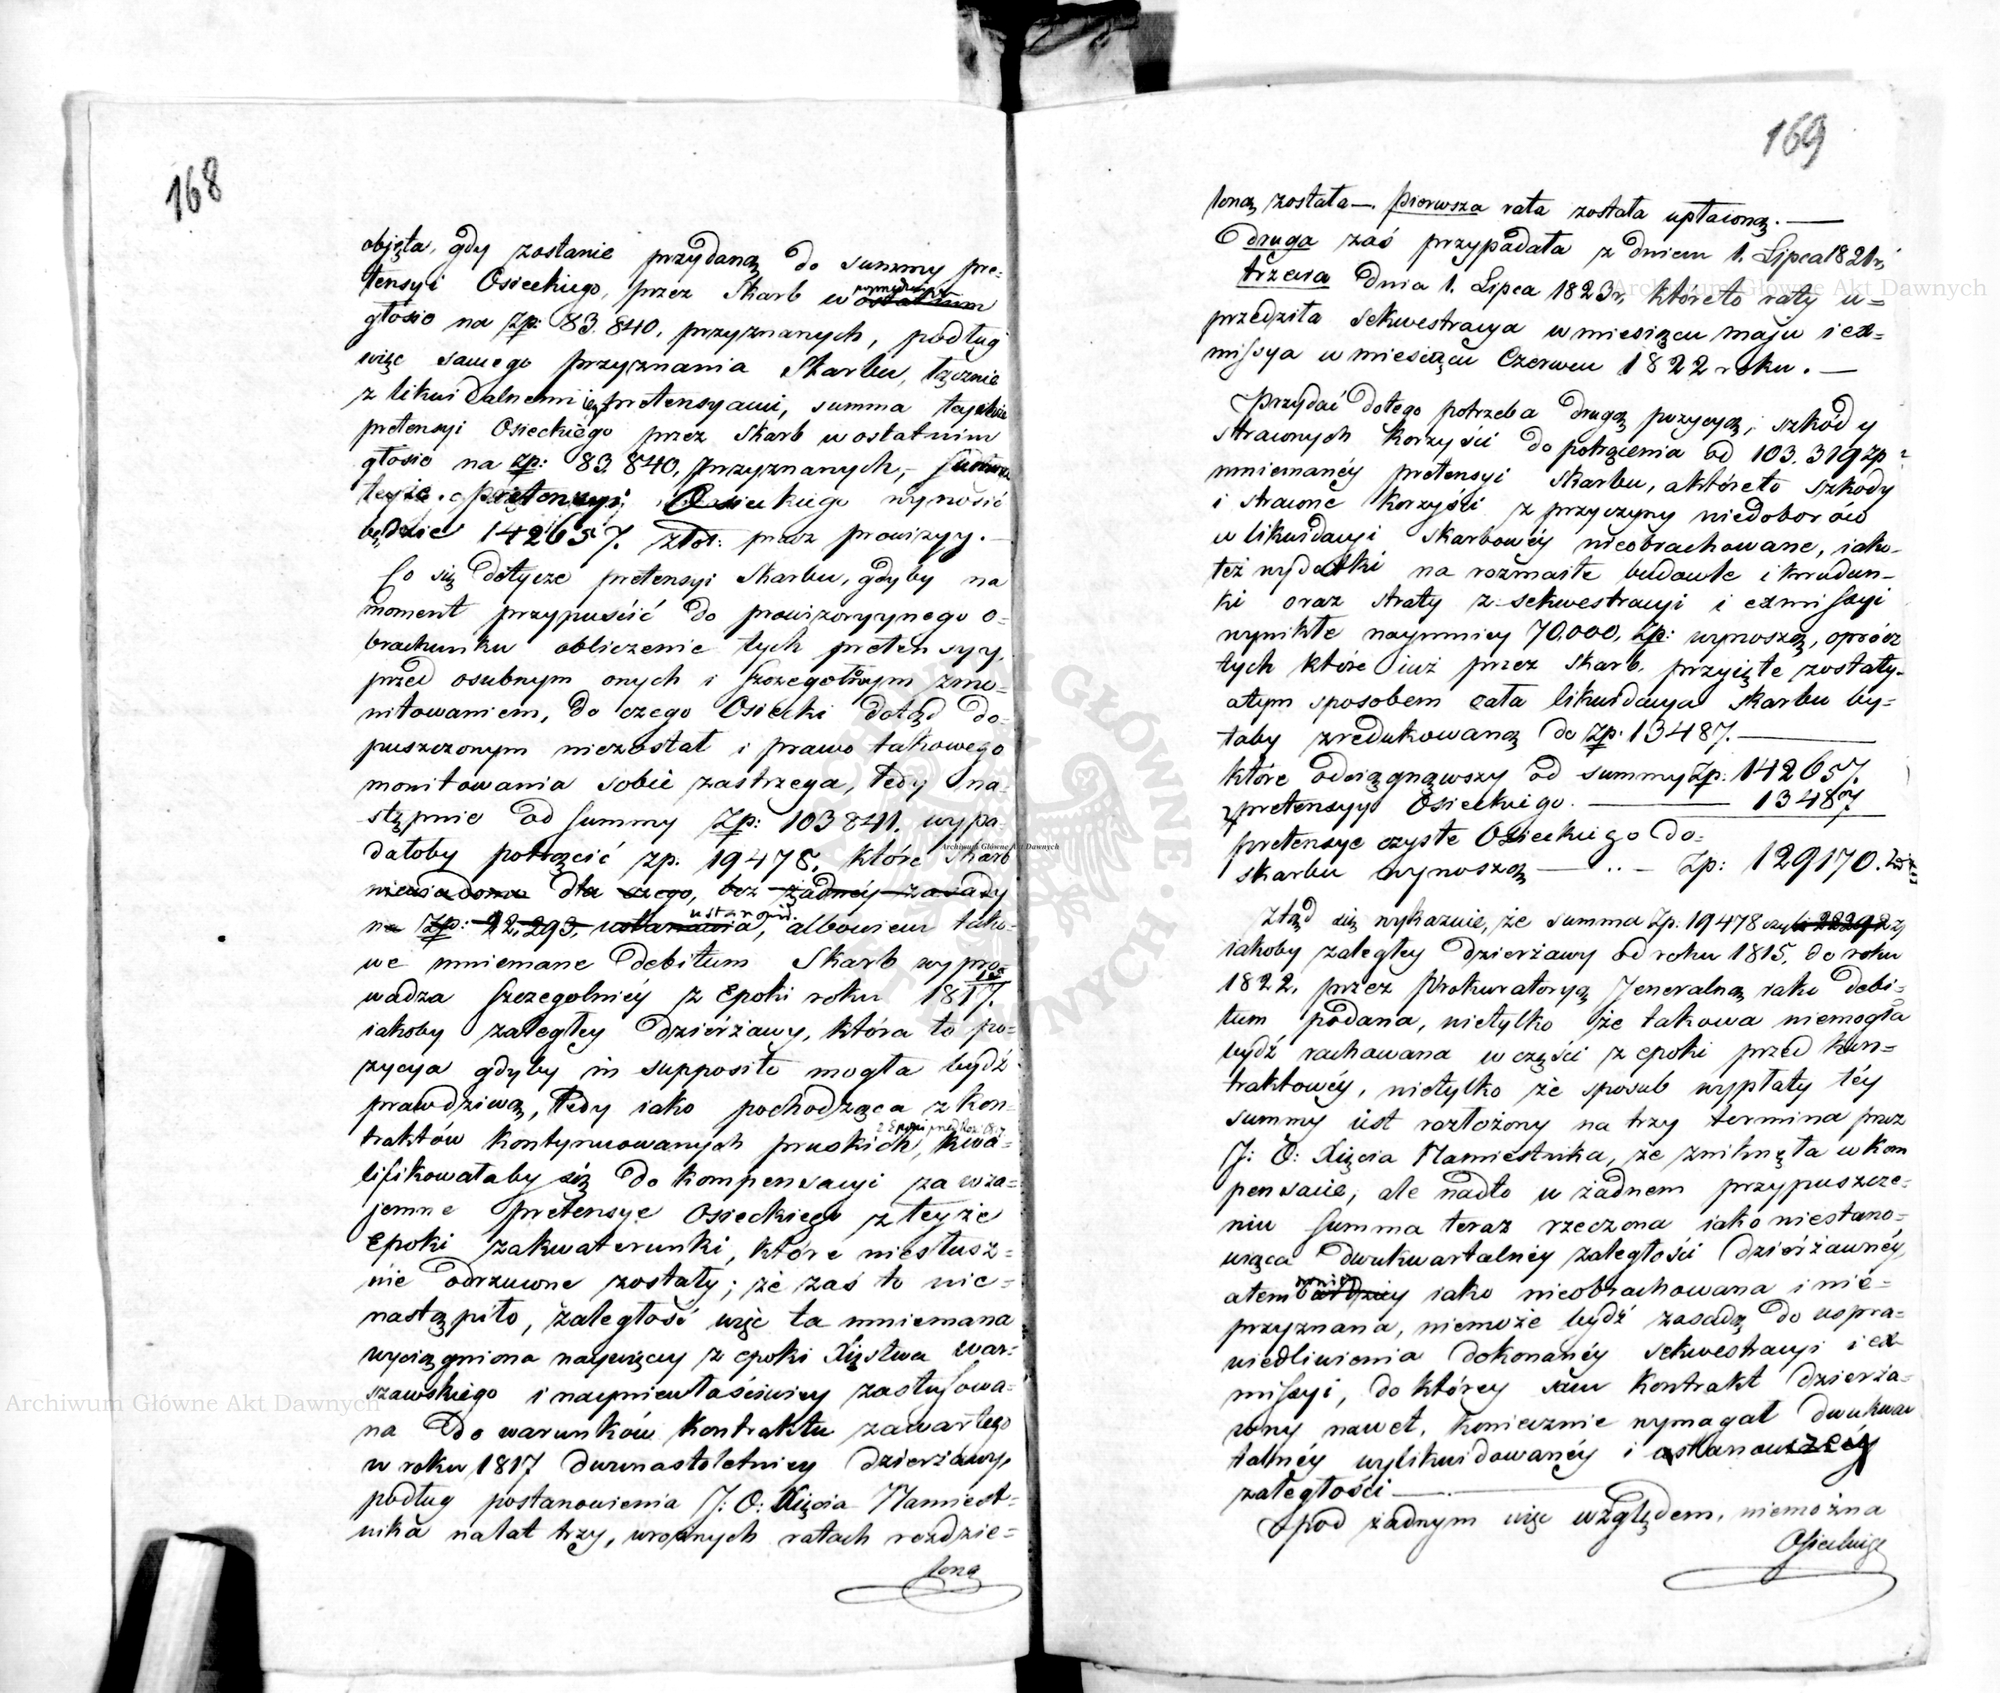 168
objęta, gdy zostanie przydaną do summy pre-
tensyi Osieckiego, przez Skarb w ostatnim
głosie na Zp: 83.840. przyznanych, podług
więc samego przyznania Skarbu, łącznie
z likwidalnemi pretensyami, summa teyże
pretensyi Osieckiego przez Skarb w ostatnim
głosie na zp: 83.840. przyznanych,
teyże pretensyi Osieckiego wynosić
będzie 142657. złot: prócz prowizyy.
Co się dotycze pretensyi Skarbu, gdyby na
moment przypuścić do prowizoryynego o-
brachunku obliczenie tych pretensyy,
przed osobnym onych i szczegółowym zmo-
nitowaniem, do czego Osiecki dotąd do-
puszczonym niezostał i prawo takowego
monitowania sobie zastrzega, tedy na-
stępnie od summy Zp: 103841. wypa-
dałoby potrącić zp. 19478. które Skarb
niewiadomo dla czego, bez żadney zasady
na Zp: 22,293, ustanawia, albowiem tako-
ustanowił
we mniemane debitum Skarb wypro-
wadza szczególniéy z Epoki roku 1817.
iakoby zaległey dzierżawy, która to po-
zycya gdyby in supposito mogła bydź
prawdziwą, tedy iako pochodząca z kon-
traktów kontynuowanych pruskich, kwa-
lifikowałaby się do kompensacyi za wza-
jemne pretensye Osieckiego z teyże
Epoki zakwaterunki, które niesłusz-
nie odrzucone zostały; że zaś to nie-
nastąpiło, zaległość więc ta mniemana
wyciągniona naywięcey z epoki Xięstwa War-
szawskiego i naymiewłaściwiey zastosowa-
na do warunków kontraktu zawartego
w roku 1817 dwunastoletniey dzierżawy,
podług postanowienia J: O: Xięcia Namiest-
nika na lat trzy, w rocznych ratach rozdzie-
loną
169
loną została—. Pierwsza rata została upłaconą.—
Druga zaś przypadała z dniem 1. Lipca 1821 r,
trzecia dnia 1. Lipca 1823 r, któreto raty u-
przedziła sekwestracya w miesiącu maju i ex-
missya w miesiącu Czerwcu 1822 roku.—
Przydać do tego potrzeba drugą pozycyą, szkód y
straconych korzyści do potrącenia od 103.319 zp
mniemanéy pretensyi Skarbu, a któreto szkody
i stracone korzyści z przyczyny niedoborów
w likwidacyi Skarbowéy nieobrachowane, iako-
też wydatki na rozmaite budowle i
ki oraz straty z sekwestracyi i exmissyi
wynikłe naymniey 70.000. Zp: wynoszą, oprócz
tych które iuż przez Skarb. przyięte zostały.
a tym sposobem cała likwidacya Skarbu by-
łaby zredukowaną do Zp. 13487.—
które odciągnąwszy od summy Zp: 142657.
z pretensyy Osieckiego. — 13487
pretensye czyste Osieckiego do-
skarbu wynoszą — Zp: 129170.
Ztąd się wykazuie, że summa Zp. 19478 czyli 22292 zł
iakoby zaległey dzierżawy od roku 1815. do roku
1822. przez Prokuratoryą Jeneralną iako debi-
tum podana, nietylko że takowa niemogła
bydź rachowana w części z epoki przed kon-
traktowéy, nietylko że sposób wypłaty téy
summy iest rozłożony na trzy termina przez
J: O: Xięcia Namiestnika, że zniknęła w kom
pensacie, ale nadto w żadnem przypuszcze-
niu summa teraz rzeczona iako niestano-
wiąca dwukwartalnéy zaległości dzierżawnéy,
a tem bardziey iako nieobrachowana i nie-
przyznana, niemoże bydź zasadą do uspra-
wiedliwienia dokonanéy sekwestracyi i ex-
missyi, do któréy sam kontrakt dzierża-
wny nawet, koniecznie wymagał dwukwar
talnéy wylikwidowanéy i
zaległości—
Pod żadnym więc względem, niemożna
Osieckiego
Archiwum Główne Akt Dawnych
Archiwum Główne Akt Dawnych
Archiwum Główne Akt Dawnych